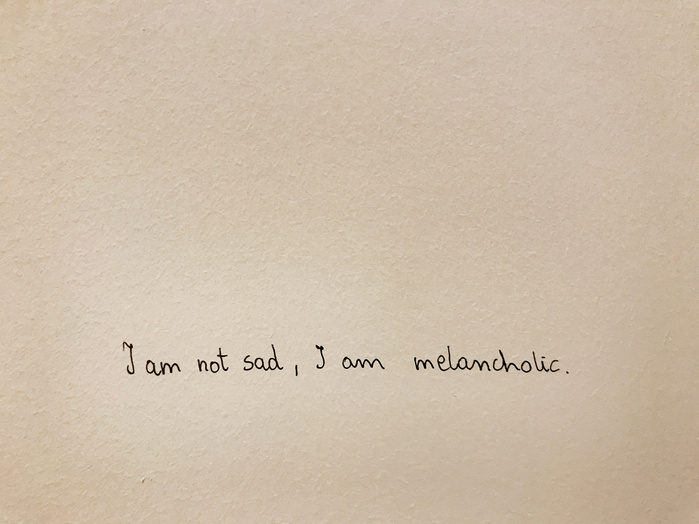 I am not sad, I am melancholic.